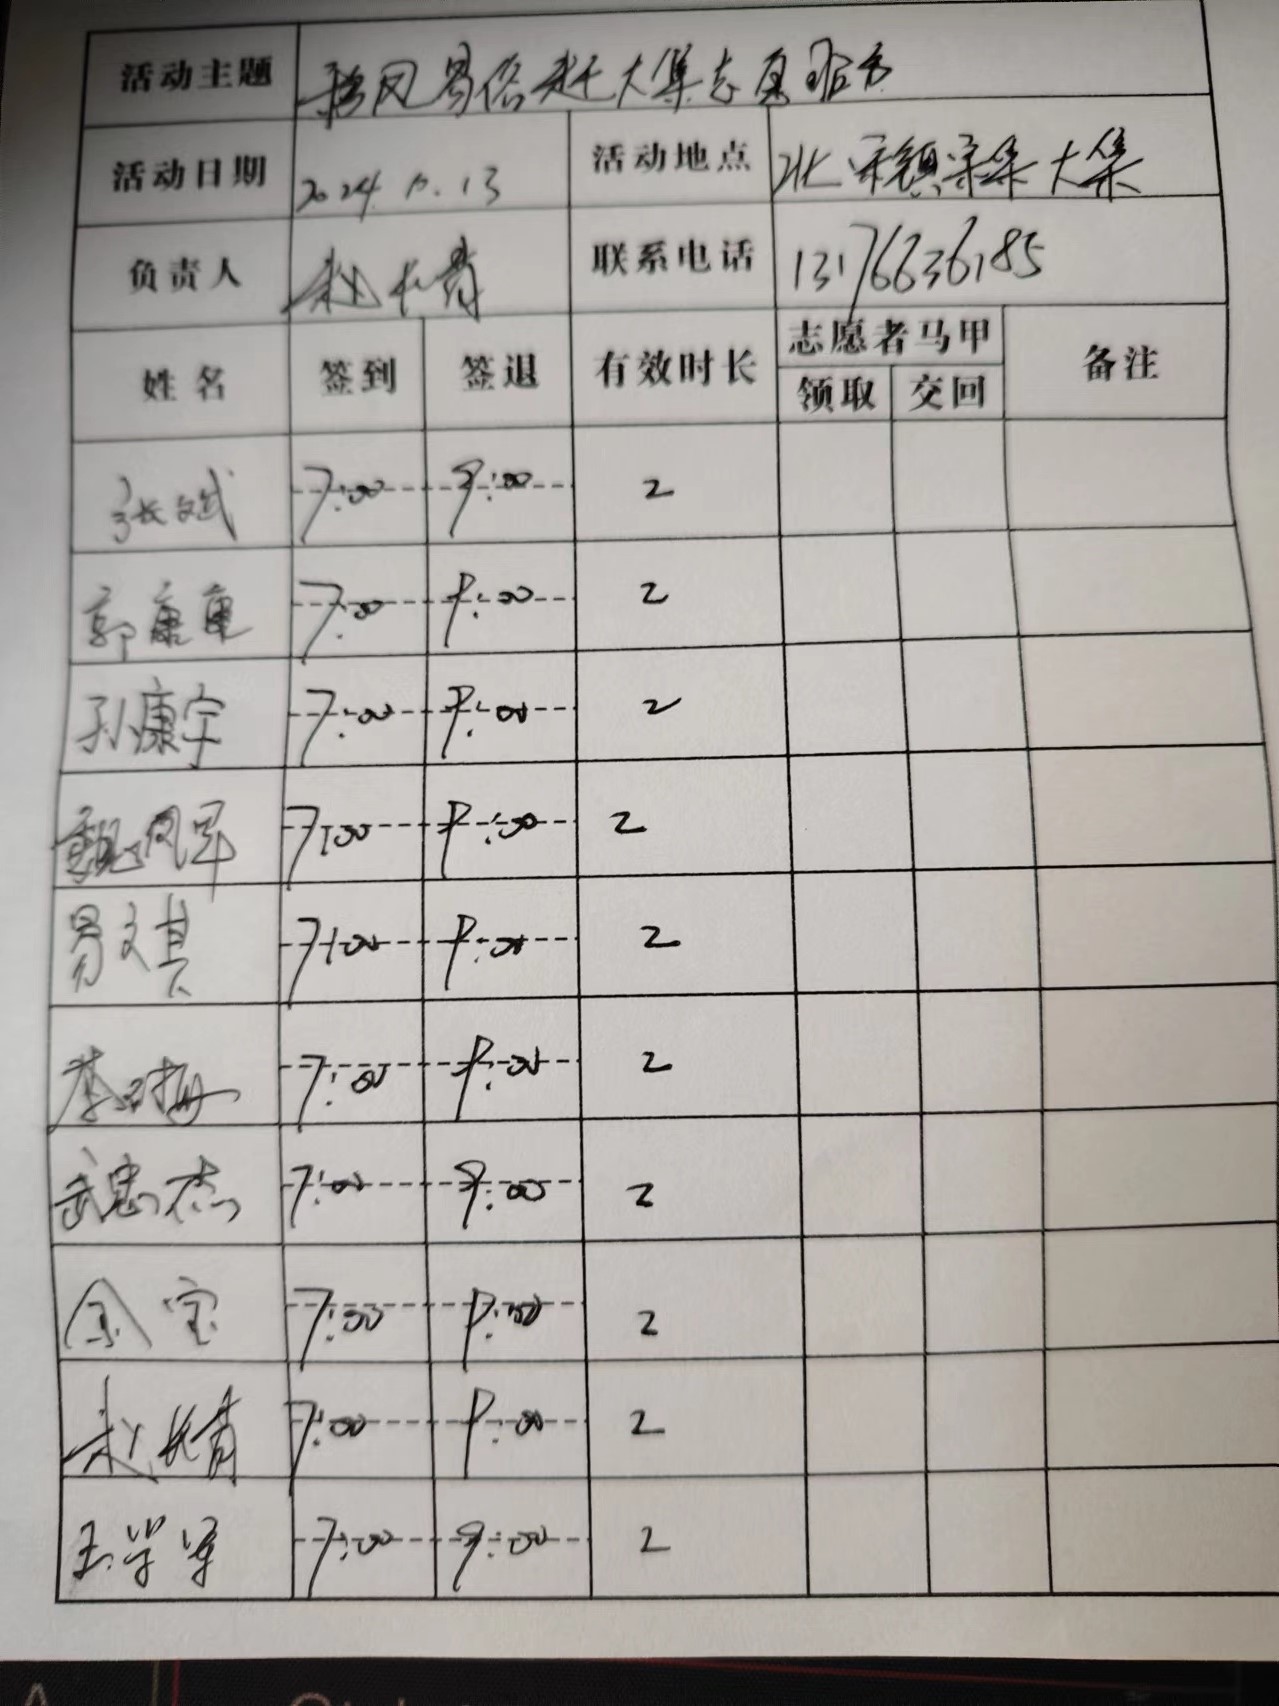 活动主题 移风易俗赶大集志愿服务
活动日期 2024.10.13 活动地点 北宋镇宋集大集
负责人 赵长青 联系电话 13176636185
姓名 签到 签退 有效时长 志愿者马甲 备注
领取 交回
张文斌 7:00 9:00 2
郭康康 7:00 9:00 2
孙康宇 7:00 9:00 2
魏凤军 7:00 9:00 2
易文其 7:00 9:00 2
7:00 9:00 2
武忠杰 7:00 9:00 2
金宝 7:00 9:00 2
赵长青 7:00 9:00 2
王学军 7:00 9:00 2